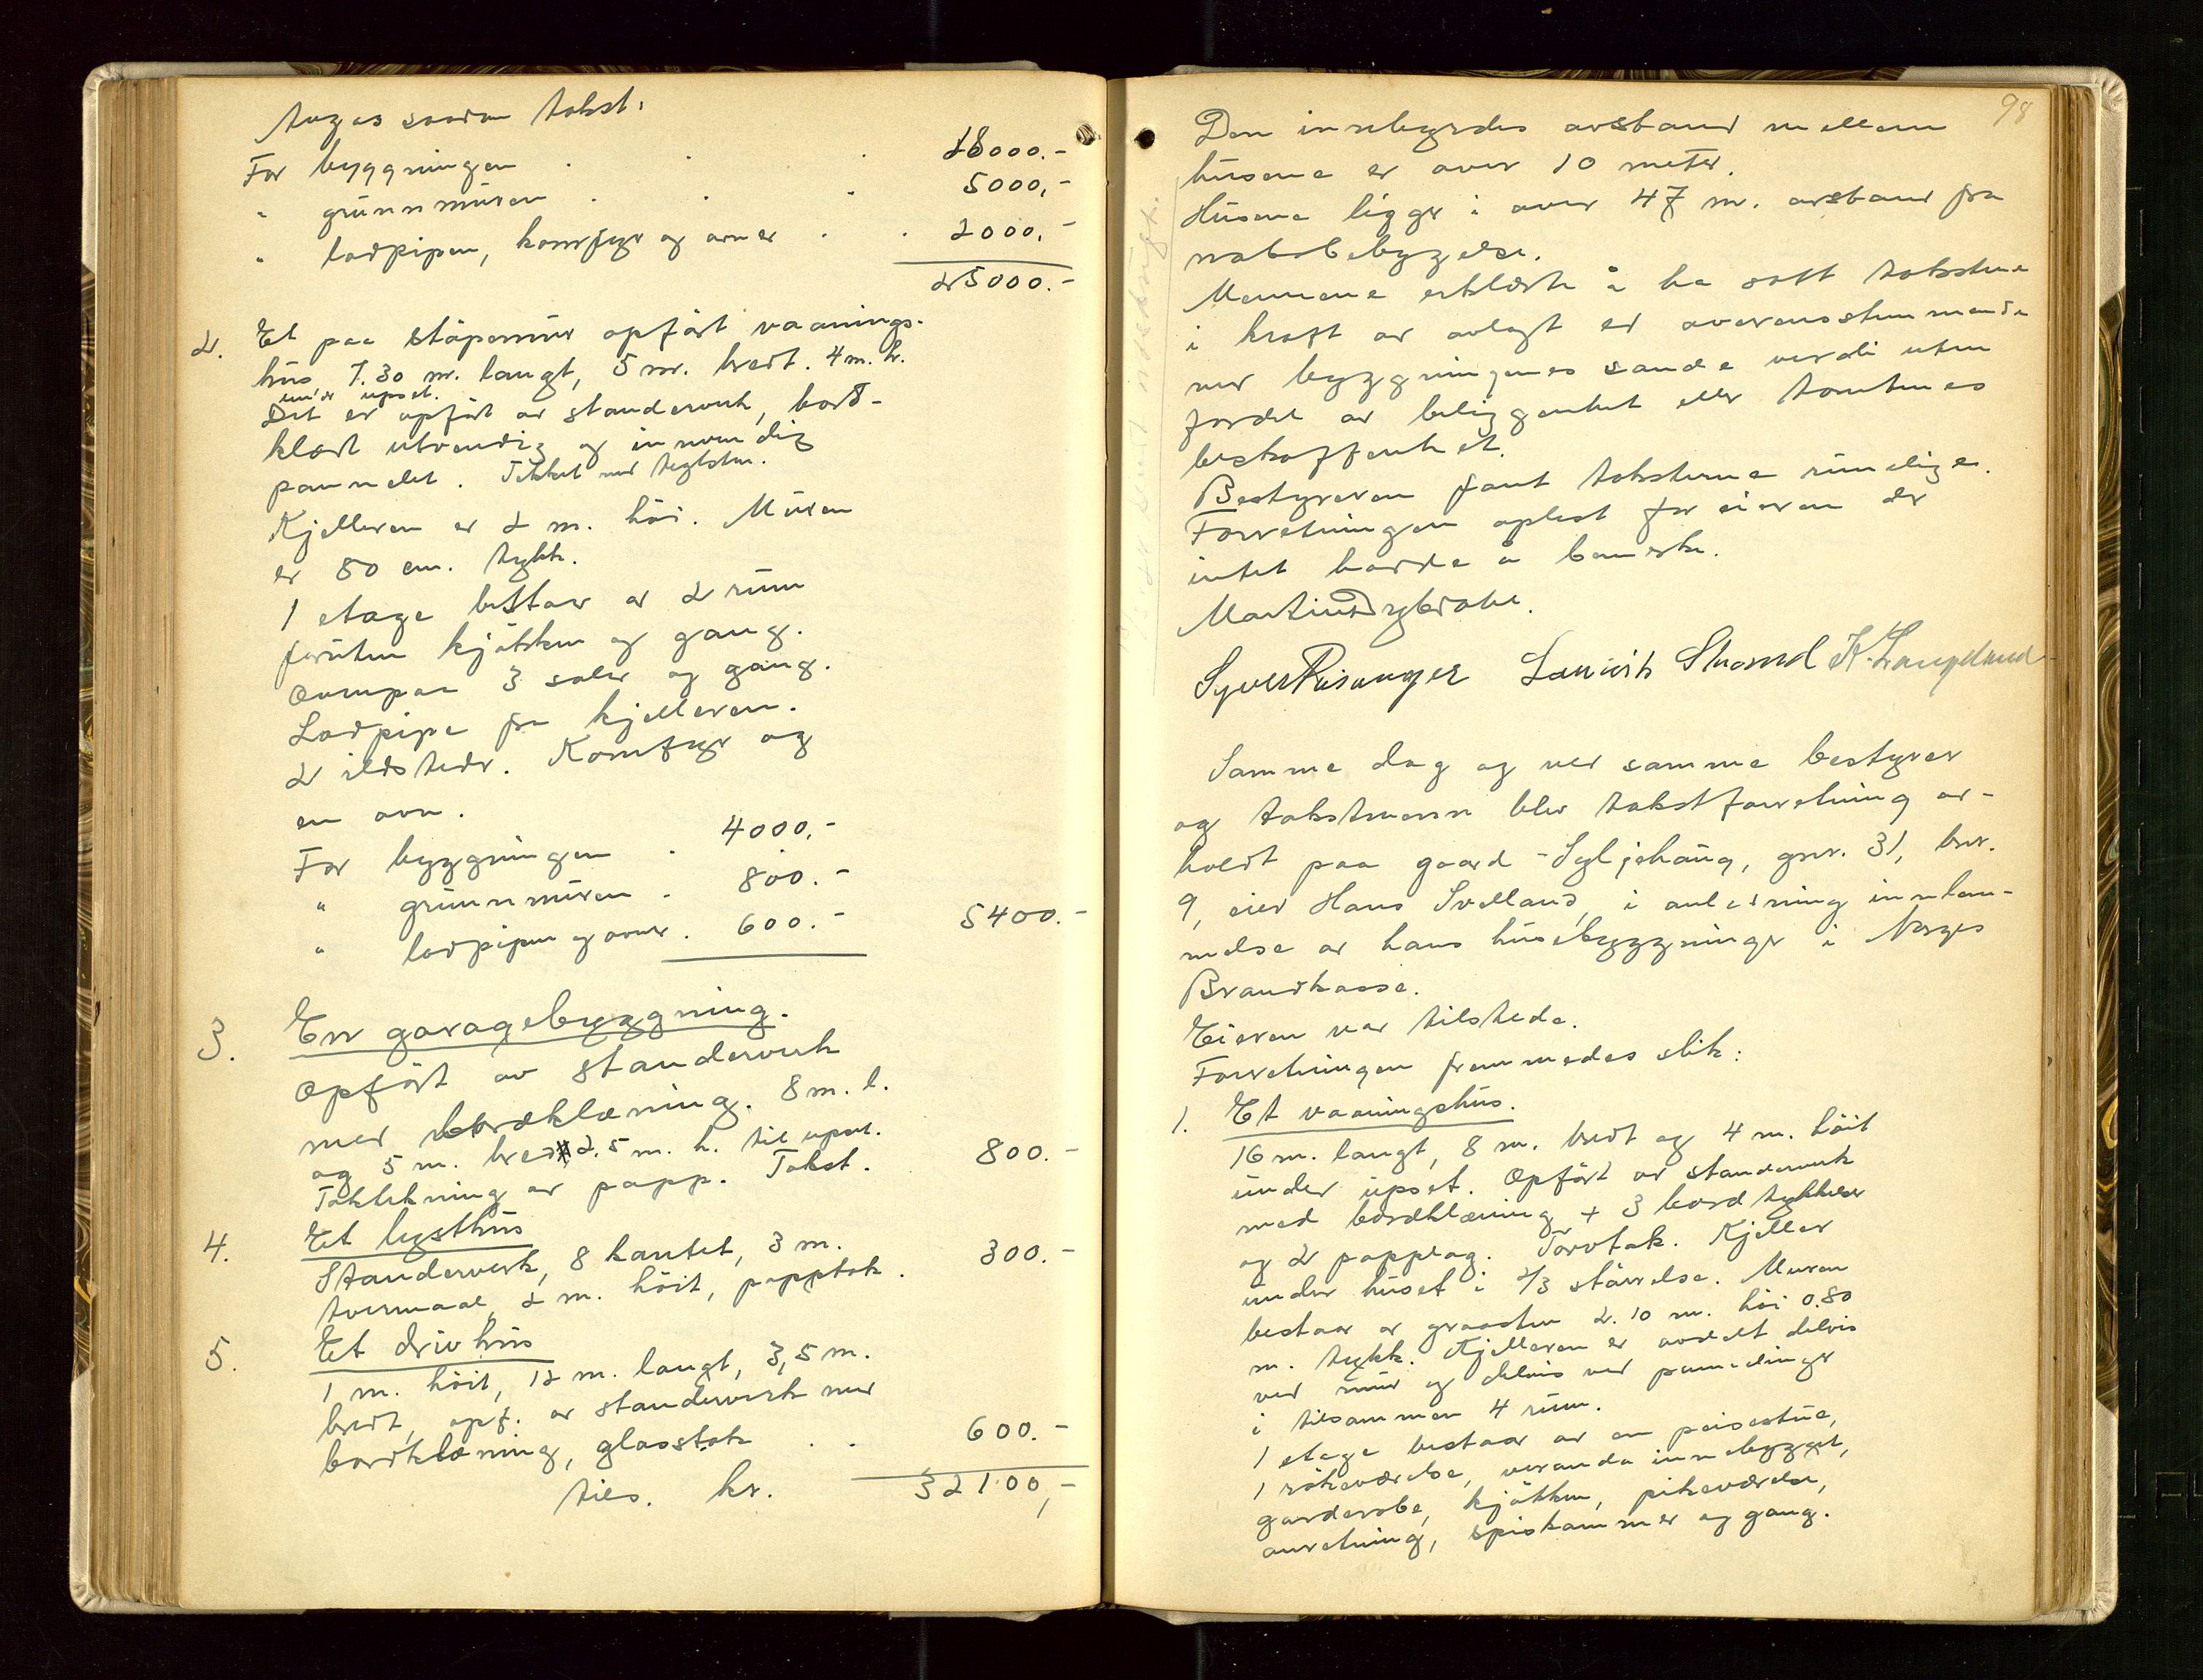 saadan takst:
For byggningen . . . 18000.-
" grünnmüren . . . 5000,-
" lodpipen, komfyr og ovner . . 2000,-
25000.-
2. Et paa stöpemür opfört vaanings-
hüs, 7.30 m. langt, 5 m. bredt. 4 m. h.
ünder upset.
Det er opfört av standerverk, bord-
klædt utvendig og innvendig
pannelet. Tekket med teglsten.
Kjelleren er 2 m. höi. Müren
er 50 cm. tykk.
1 etage bestaar av 2 rüm
forüten kjökken og gang.
Ovenpaa 3 saler og gang.
Lodpipe fra kjelleren.
2 ildsteder. Komfyr og
en ovn.
For byggningen . 4000.-
" grünnmüren . 800.-
" lodpipen og ovner . 600.- 5400.-
3. En garagebyggning.
Opfört av standerverk
med bordklæning. 8 m. l.
og 5 m. bred 2.5 m. h. til upset.
Taktekning av papp. Takst. 800.-
4. Et lysthüs
Standerverk, 8 kantet, 3 m.
tvermaal, 2 m. höit, papptak . 300.-
5. Et drivhüs
1 m. höit, 12 m. langt, 3,5 m.
bredt, opf. av standerverk med
bordklæning, glasstak . . 600.-
tils. kr. 32100,-
98
Den innebyrdes avstand mellem
hüsene er over 10 meter.
Hüsene ligger i over 47 m. avstand fra
nabobebyggelse.
Mennene erklærte å ha satt takstene
i kraft av avlagt ed overensstemmende
med byggningenes sande verdi uten
fordel av beliggenhet eller tomtenes
beskaffenhet.
Bestyreren fant takstene rimelige.
Forretningen oplest for eieren der
intet hadde å bemerke.
Martin Dybdahl.
Syver Risanger Laurits Strand K. Langeland
Samme dag og ved samme bestyrer
og takstmenn blev takstforretning av-
holdt paa gaard Syljehaüg, gnr. 31, bnr.
9, eier Hans Svelland, i anledning innlem-
melse av hans hüsebyggninger i Norges
Brandkasse.
Eieren var tilstede.
Forretningen fremmedes slik:
1. Et vaaningshüs.
16 m. langt, 8 m. bredt og 4 m. höit
ünder üpset. Opfört av standerverk
med bordklæning + 3 bord tykkelser
og 2 papplag. Torvtak. Kjeller
under hüset i 2/3 störrelse. Muren
bestaar av graasten 2.10 m. höi 0.80
m. tykk. Kjelleren er avdelt delvis
ved mür og delvis ved pannelinger
i tilsammen 4 rüm.
1 etage bestaar av en peisestüe,
1 rökeværelse, veranda innebygget,
garderobe, kjökken, pikeværelse,
anretning, spiskammer og gang.